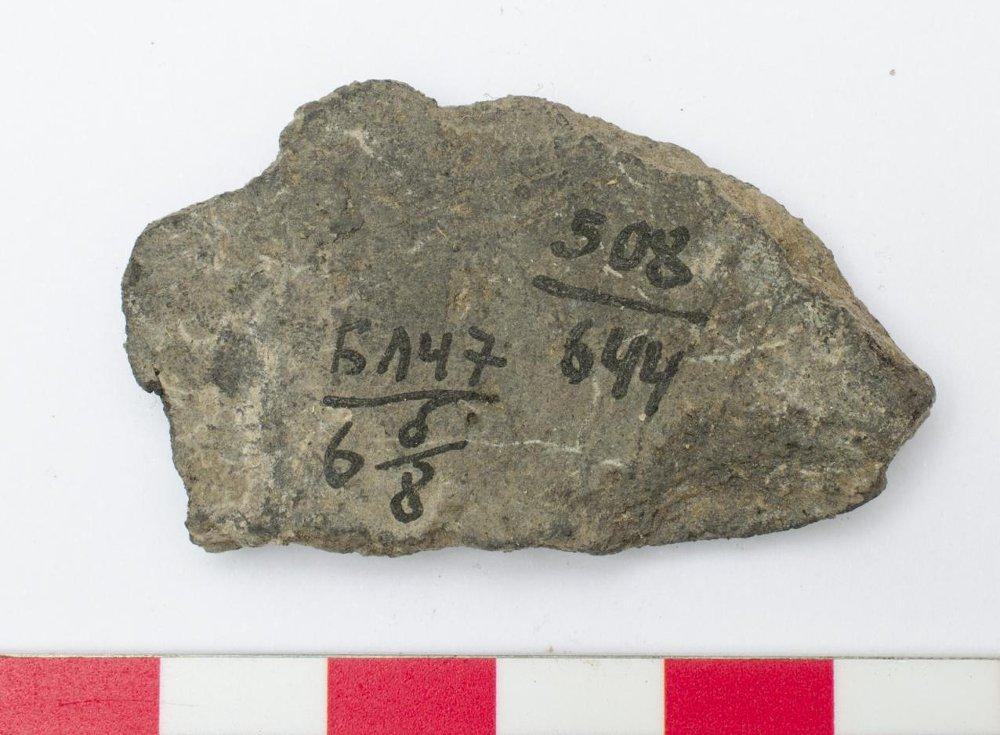 508
644
БЛ47
6 6
8